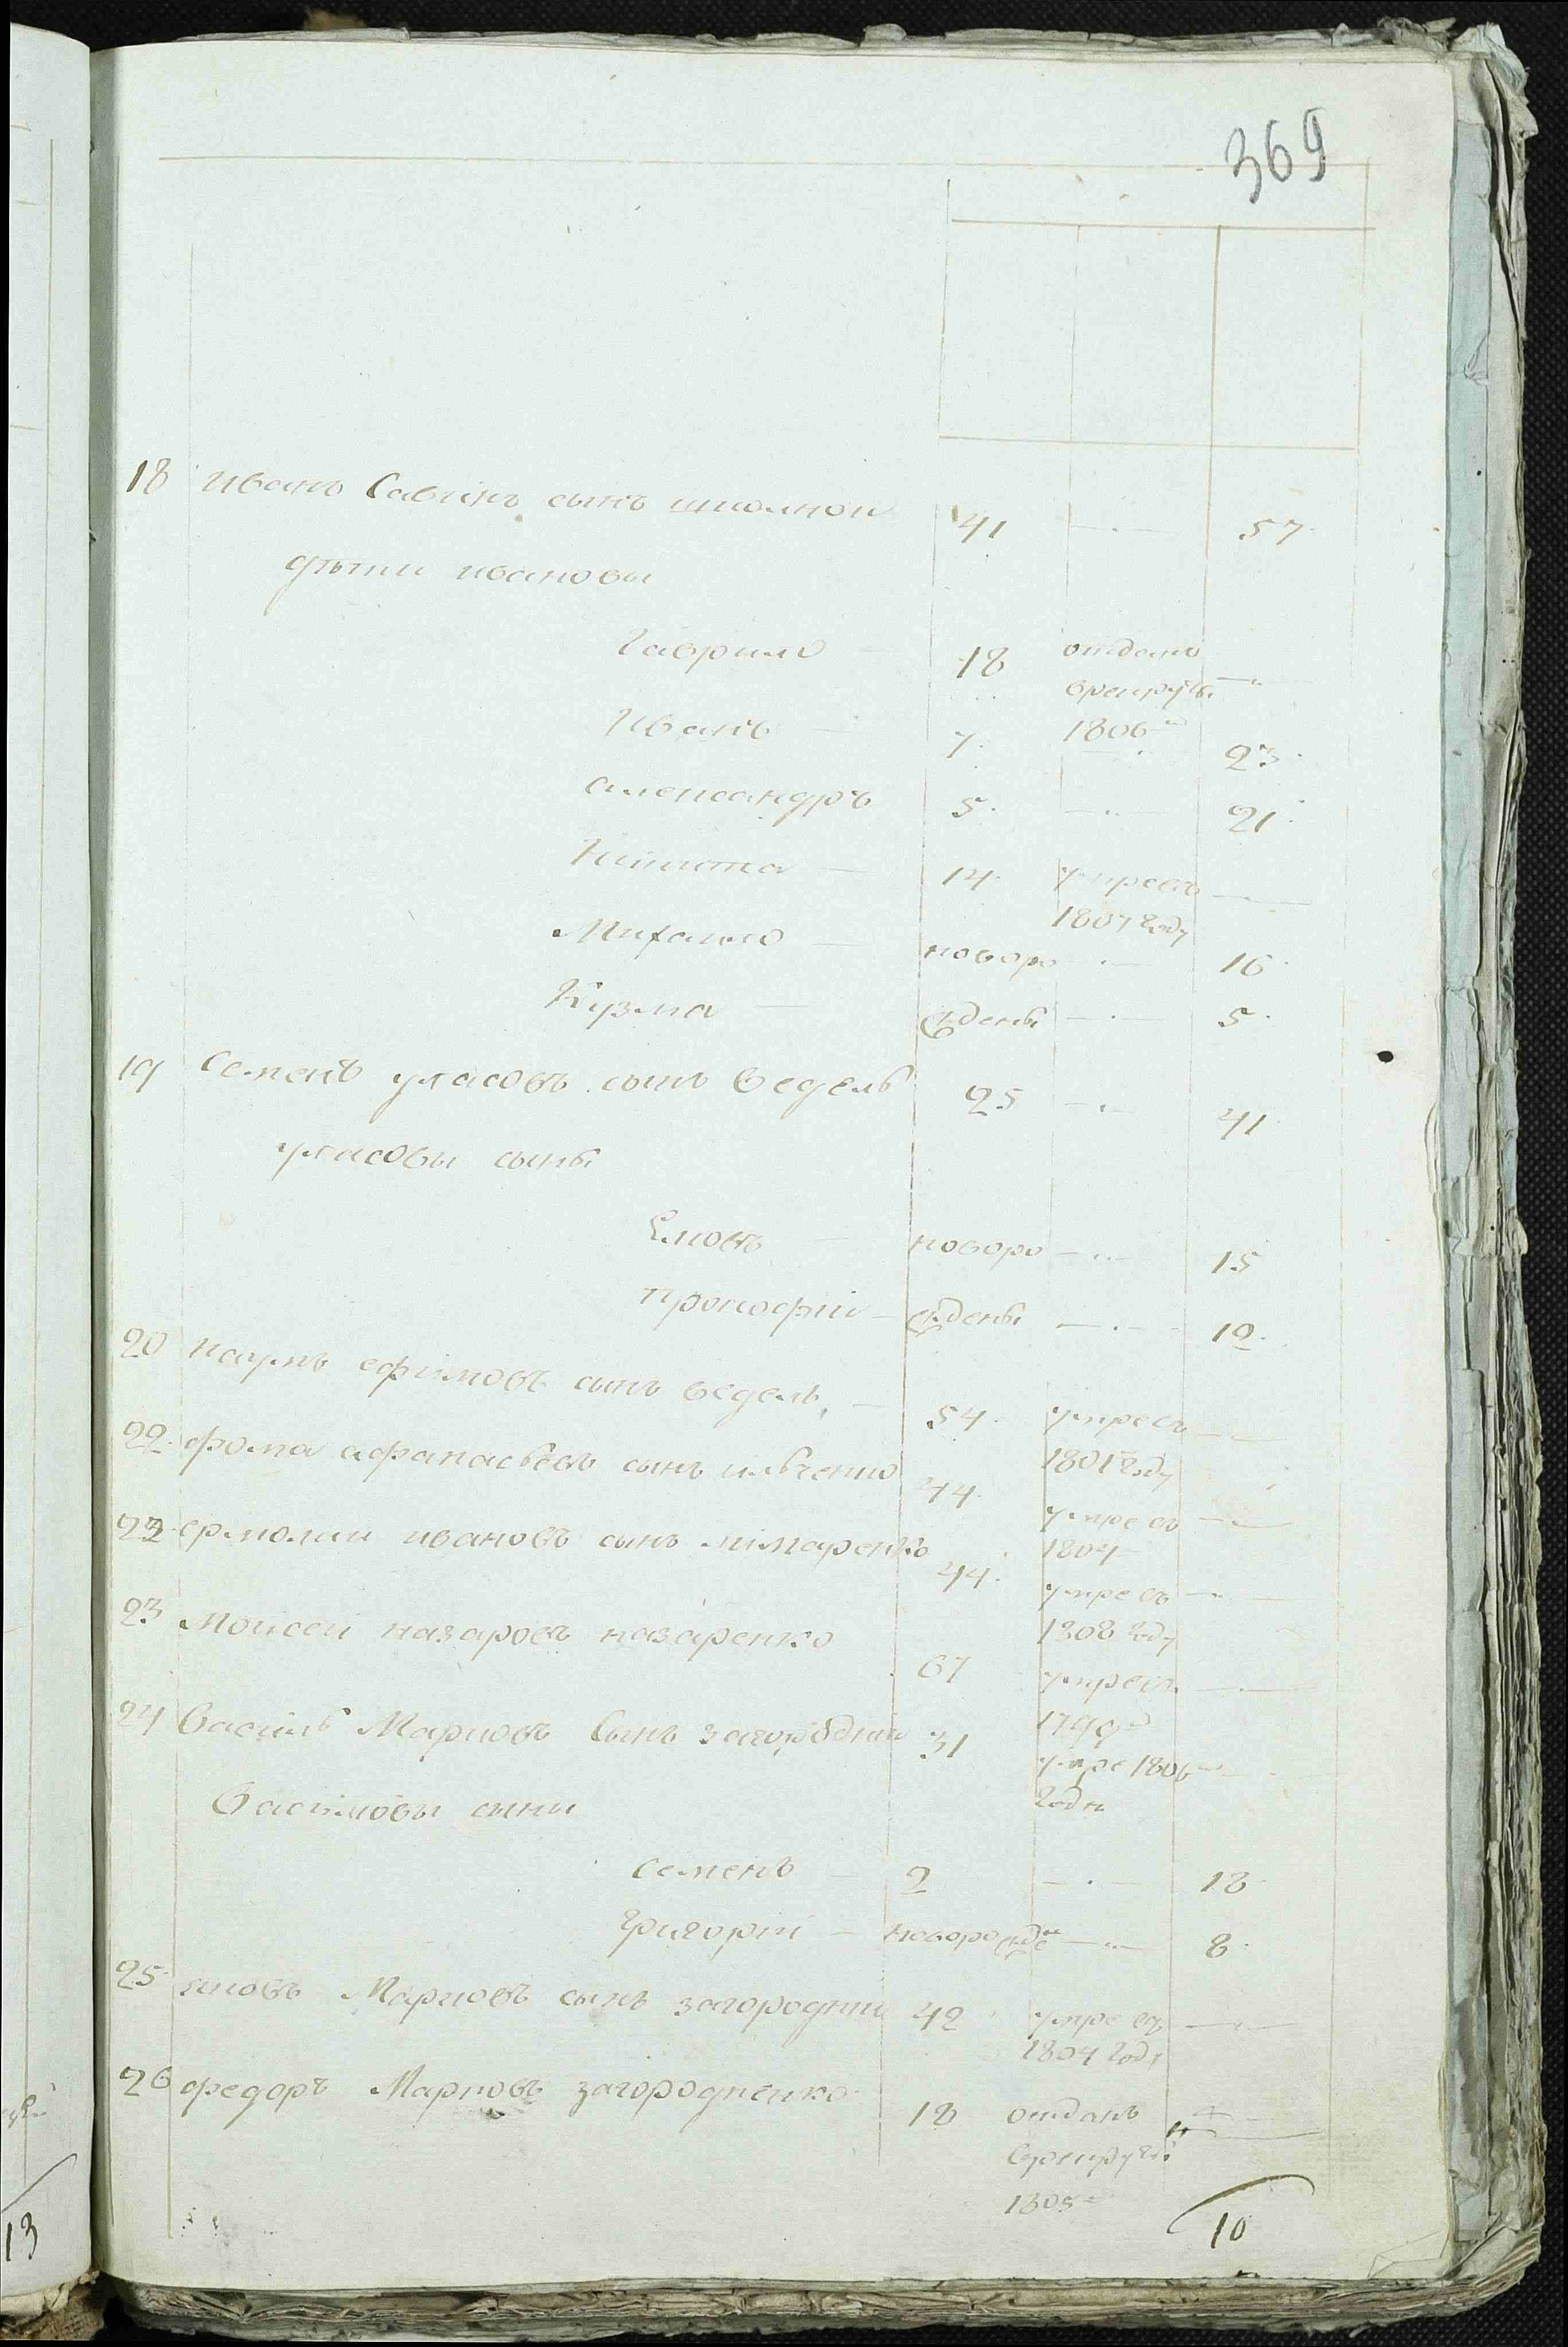 369
18 Иванъ Савинъ сынъ школной 41 — 57
дѣти ивановы
Гаврило — 18 отданъ —
врекруты
Иванъ — 7 1806 — 23
александръ 5 — 21
Никита — 14 умре въ —
1807 году
Михаило — новоро — 16
Кузма — жденъ — 5
19 Семенъ уласовъ сынъ ведель 25 — 41
уласовы сыны
Яковъ — новоро — 15
прокофій — ждены — 12
20 наумъ ефимовъ сынъ ведель — 54 умре въ —
1801 году
22 фома афанасьевъ сынъ ильченко 44 умре въ —
1807
22 ермолаи ивановъ сынъ лимаренко 44 умре въ —
1808 году
23 Моисей назаровъ назаренко 67 умре въ —
1799
24 Василь Марковъ Сынъ загородний 31 умре 1806 —
году
Василіовы сыны
семенъ — 2 — 18
григорій — новорожде — 8
25 яковъ Марковъ сынъ загородний 42 умре въ —
1804 году
26 федоръ Марковъ загородненко 18 отданъ —
врекруты
1805
10
13